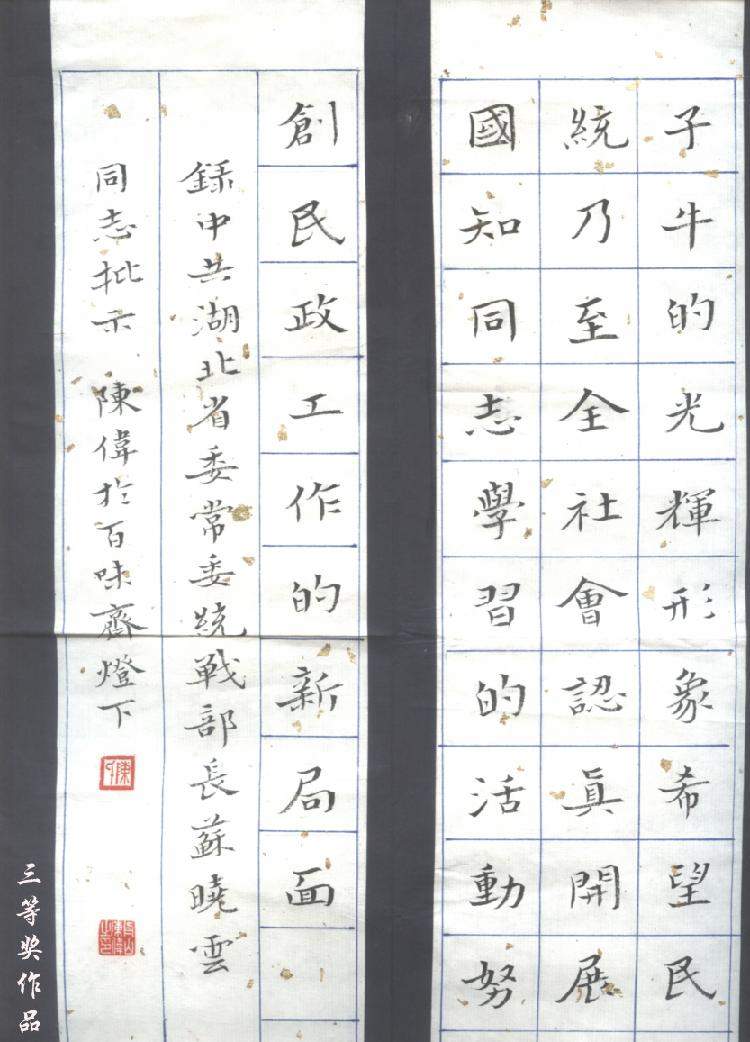 子牛的光輝形象希望民
統乃至全社會認真開展
國知同志學習的活動努
創民政工作的新局面
録中共湖北省委常委統戰部長蘇曉雲
同志批示 陳偉於百味齋燈下
三等奖作品